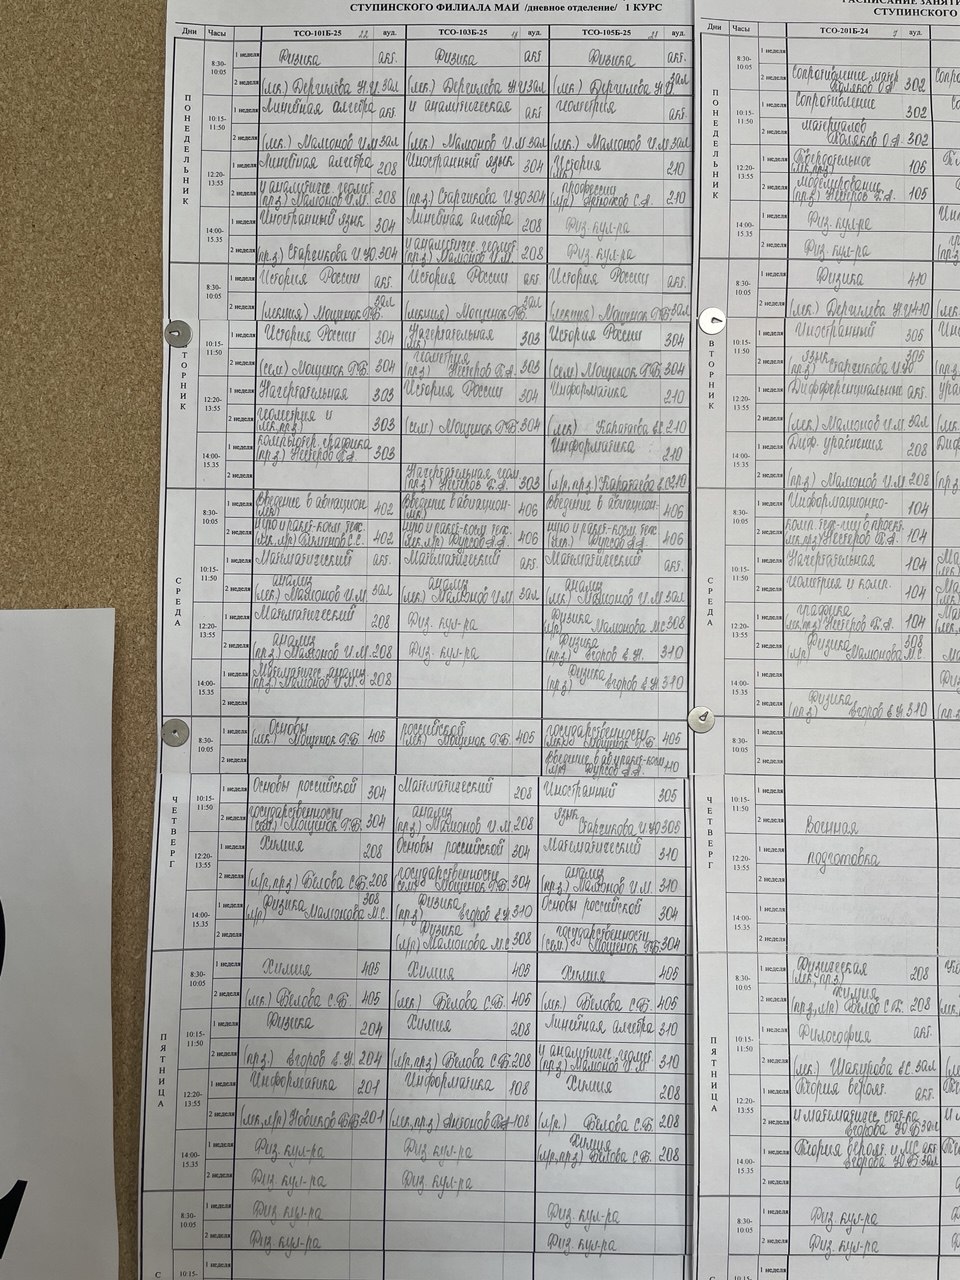 СТУПИНСКОГО ФИЛИАЛА МАИ /дневное отделение/ 1 КУРС
Дни Часы ТСО-101Б-25 22 ауд. ТСО-103Б-25 ауд. ТСО-105Б-25 21 ауд.
ПОНЕДЕЛЬНИК
8:30-10:05 1 неделя Физика акт. Физика акт. Физика акт.
2 неделя (лк.) Дергилёва Н.И. зал (лк.) Дергилёва Н.И. зал (лк.) Дергилёва Н.И. зал
10:15-11:50 1 неделя Линейная алгебра акт. и аналитическая акт. геометрия акт.
2 неделя (лк.) Мамонов И.М. зал (лк.) Мамонов И.М. зал (лк.) Мамонов И.М. зал
12:20-13:55 1 неделя Линейная алгебра 208 Иностранный язык 304 История 210
2 неделя и аналитичес. геомет. (прз) Мамонов И.М. 208 (прз.) Старчикова И.Ю. 304 профессии 210
14:00-15.35 1 неделя Иностранный язык 304 Линейная алгебра 208 Физ. кул-ра
2 неделя (прз) Старчикова И.Ю. 304 и аналитичес. геомет. (прз.) Мамонов И.М. 208 Физ. кул-ра
ВТОРНИК
8:30-10:05 1 неделя История России акт. История России акт. История России акт.
2 неделя (лекция) Мощенок Г.Б. зал (лекция) Мощенок Г.Б. зал (лекция) Мощенок Г.Б. зал
10:15-11:50 1 неделя История России 304 Начертательная (лк) 303 История России 304
2 неделя (сем) Мощенок Г.Б. 304 геометрия (прз) Нестеров Б.А. 303 (сем) Мощенок Г.Б. 304
12:20-13:55 1 неделя Начертательная 303 История России 304 Информатика 210
2 неделя геометрия и (лк,прз) 303 (сем) Мощенок Г.Б. 304 (лк) 210
14:00-15.35 1 неделя компьютер. графика (прз) Нестеров Б.А. 303 Информатика 210
2 неделя Начертательная геом. (прз) Нестеров Б.А. 303 (л/р, прз) 210
СРЕДА
8:30-10:05 1 неделя Введение в авиацион- (лк) 402 Введение в авиацион- (лк) 406 Введение в авиацион- 406
2 неделя ную и ракет-косм. тех. 402 ную и ракет-косм. тех. Фурсов А.А. 406 ную и ракет-косм. тех. (лк.) Фурсов А.А. 406
10:15-11:50 1 неделя Математический акт. Математический акт. Математический акт.
2 неделя анализ (лк.) Мамонов И.М. зал анализ (лк) Мамонов И.М. зал анализ (лк.) Мамонов И.М. зал
12:20-13:55 1 неделя Математический 208 Физ. кул-ра Физика (л/р) Мамонова М.С. 308
2 неделя анализ (прз) Мамонов И.М. 208 Физ. кул-ра Физика (прз) Егоров Е.Н. 310
14:00-15.35 1 неделя Математичес. анализ (прз) Мамонов И.М. 208 Физика (прз) Егоров Е.Н. 310
2 неделя
ЧЕТВЕРГ
8:30-10:05 1 неделя Основы (лк) Мощенок Г.Б. 405 российской (лк) Мощенок Г.Б. 405 государственности (лк) Мощенок Г.Б. 405
2 неделя Фурсов А.А. 110
10:15-11:50 1 неделя Основы российской 304 Математический 208 Иностранный 305
2 неделя государственности (сем.) Мощенок Г.Б. 304 анализ (прз) Мамонов И.М. 208 язык Старчикова И.Ю. 305
12:20-13:55 1 неделя Химия 208 Основы российской 304 Математический 310
2 неделя (л/р, прз) Белова С.Б. 208 государственности (сем) Мощенок Г.Б. 304 анализ (прз) Мамонов И.М. 310
14:00-15.35 1 неделя Физика (л/р) Мамонова М.С. 308 Физика (прз) Егоров Е.Н. 310 Основы российской 304
2 неделя Физика (л/р) Мамонова М.С. 308 государственности (сем) Мощенок Г.Б. 304
ПЯТНИЦА
8:30-10:05 1 неделя Химия 405 Химия 405 Химия 405
2 неделя (лк.) Белова С.Б. 405 (лк.) Белова С.Б. 405 (лк.) Белова С.Б. 405
10:15-11:50 1 неделя Физика 204 Химия 208 Линейная алгебра 310
2 неделя (прз.) Егоров Е.Н. 204 (л/р, прз) Белова С.Б. 208 и аналитичес. геомет. (прз) Мамонов И.М. 310
12:20-13:55 1 неделя Информатика 201 Информатика 108 Химия 208
2 неделя (лк, л/р) Новиков 201 (лк, прз) 108 (л/р.) Белова С.Б. 208
14:00-15.35 1 неделя Физ. кул-ра Физ. кул-ра Химия (л/р, прз) Белова С.Б. 208
2 неделя Физ. кул-ра Физ. кул-ра
С
8:30-10:05 1 неделя Физ. кул-ра Физ. кул-ра
2 неделя Физ. кул-ра Физ. кул-ра
10:15- 1 неделя
СТУПИНСКОГО
Дни Часы ТСО-201Б-24 ауд.
ПОНЕДЕЛЬНИК
8:30-10:05 1 неделя
2 неделя Сопротивление 302
10:15-11:50 1 неделя Сопротивление 302
2 неделя материалов 302
12:20-13:55 1 неделя Твердотельное 105
2 неделя моделирование (прз) Нестеров Б.А. 105
14:00-15.35 1 неделя Физ. кул-ра
2 неделя Физ. кул-ра
ВТОРНИК
8:30-10:05 1 неделя Физика 410
2 неделя (лк.) Дергилёва Н.И. 410
10:15-11:50 1 неделя Иностранный 305
2 неделя язык (прз) Старчикова И.Ю. 305
12:20-13:55 1 неделя Дифференциальные акт.
2 неделя (лк.) Мамонов И.М. зал
14:00-15.35 1 неделя Диф. уравнения 208
2 неделя (прз) Мамонов И.М. 208
СРЕДА
8:30-10:05 1 неделя Информационно- 104
2 неделя Нестеров Б.А. 104
10:15-11:50 1 неделя Начертательная 104
2 неделя геометрия и комп. 104
12:20-13:55 1 неделя графика (лк,прз) Нестеров Б.А. 104
2 неделя Физика (л/р) Мамонова М.С. 308
14:00-15.35 1 неделя
2 неделя Физика (прз) Егоров Е.Н. 310
ЧЕТВЕРГ
8:30-10:05 1 неделя
2 неделя
10:15-11:50 1 неделя
2 неделя Военная
12:20-13:55 1 неделя подготовка
2 неделя
14:00-15.35 1 неделя
2 неделя
ПЯТНИЦА
8:30-10:05 1 неделя Физическая (лк, прз) 208
2 неделя химия (прз, л/р) Белова С.Б. 208
10:15-11:50 1 неделя Философия акт.
2 неделя (лк.) Шакурова зал
12:20-13:55 1 неделя Теория вероят. акт.
2 неделя и математичес. стат-ка Егорова Ю.Б. зал
14:00-15.35 1 неделя Теория вероят. и МС акт. Егорова Ю.Б. зал
2 неделя
С
8:30-10:05 1 неделя Физ. кул-ра
2 неделя Физ. кул-ра
10:15- 1 неделя